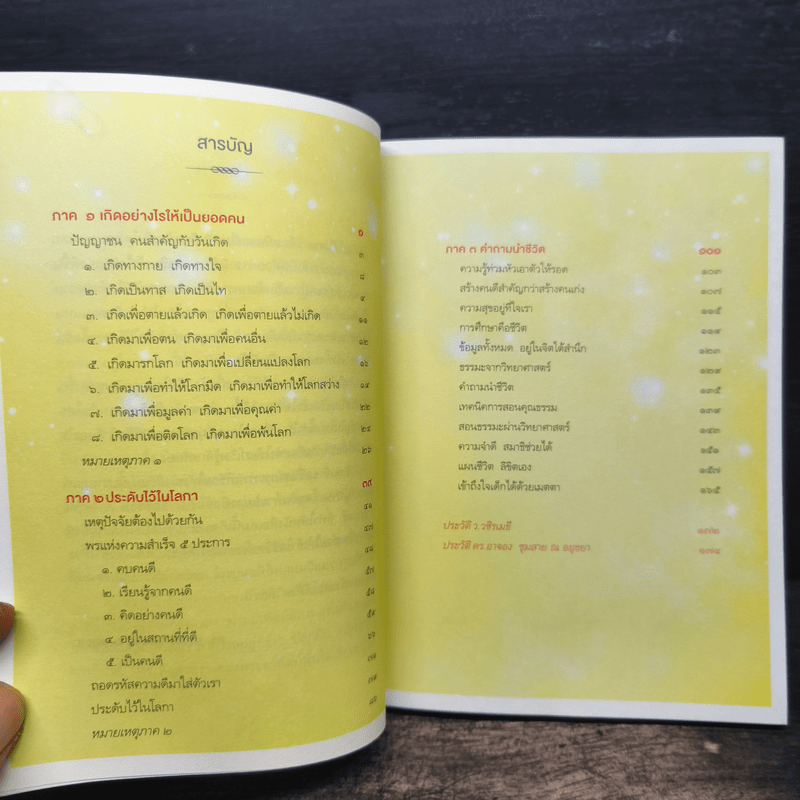 สารบัญ
ภาค ๑ เกิดอย่างไรให้เป็นยอดคน ๑
ปัญญาชน คนสำคัญกับวันเกิด ๓
๑. เกิดทางกาย เกิดทางใจ ๘
๒. เกิดเป็นทาส เกิดเป็นไท ๙
๓. เกิดเพื่อตายแล้วเกิด เกิดเพื่อตายแล้วไม่เกิด ๑๑
๔. เกิดมาเพื่อตน เกิดมาเพื่อคนอื่น ๑๒
๕. เกิดมารกโลก เกิดมาเพื่อเปลี่ยนแปลงโลก ๑๖
๖. เกิดมาเพื่อทำให้โลกมืด เกิดมาเพื่อทำให้โลกสว่าง ๑๙
๗. เกิดมาเพื่อมูลค่า เกิดมาเพื่อคุณค่า ๒๒
๘. เกิดมาเพื่อติดโลก เกิดมาเพื่อพ้นโลก ๒๔
หมายเหตุภาค ๑ ๒๖
ภาค ๒ ประดับไว้ในโลกา ๓๙
เหตุปัจจัยต้องไปด้วยกัน ๔๑
พรแห่งความสำเร็จ ๕ ประการ ๔๗
๑. คบคนดี ๔๘
๒. เรียนรู้จากคนดี ๕๗
๓. คิดอย่างคนดี ๕๘
๔. อยู่ในสถานที่ที่ดี ๕๙
๕. เป็นคนดี ๖๖
ถอดรหัสความดีมาใส่ตัวเรา
ประดับไว้ในโลกา
หมายเหตุภาค ๒
ภาค ๓ คำถามนำชีวิต ๑๐๑
ความรู้ท่วมหัวเอาตัวให้รอด ๑๐๓
สร้างคนดีสำคัญกว่าสร้างคนเก่ง ๑๐๗
ความสุขอยู่ที่ใจเรา ๑๑๕
การศึกษาคือชีวิต ๑๑๙
ข้อมูลทั้งหมด อยู่ในจิตใต้สำนึก ๑๒๓
ธรรมะจากวิทยาศาสตร์ ๑๒๙
คำถามนำชีวิต ๑๓๕
เทคนิคการสอนคุณธรรม ๑๓๙
สอนธรรมะผ่านวิทยาศาสตร์ ๑๔๓
ความจำดี สมาธิช่วยได้ ๑๕๑
แผนชีวิต ลิขิตเอง ๑๕๗
เข้าถึงใจเด็กได้ด้วยเมตตา ๑๖๕
ประวัติ ว.วชิรเมธี ๑๗๒
ประวัติ ดร.อาจอง ชุมสาย ณ อยุธยา ๑๗๔